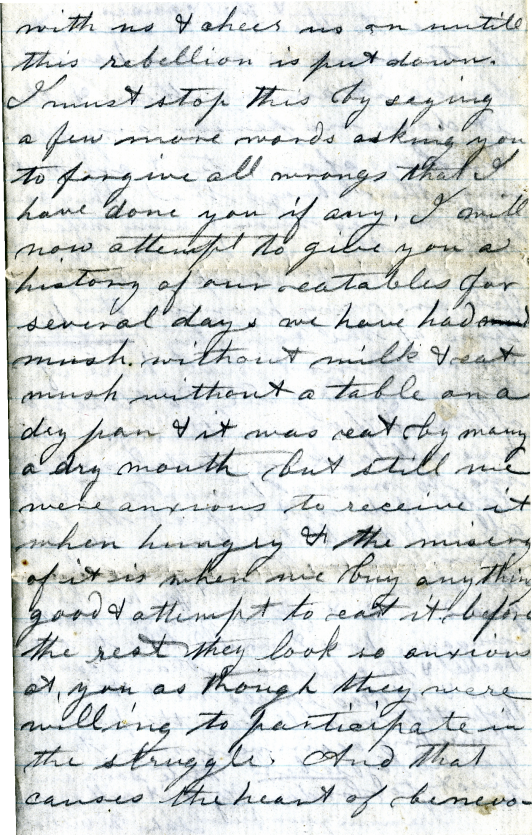 with us & cheer us on untill
this rebellion is put down.
I must stop this by saying
a few more words asking you
to forgive all wrongs that I
have done you if any. I will
now attempt to give you a
history of our eatables for
several days we have had
mush without milk & eat
mush without a table on a
dry pan & it was eat by many
a dry mouth but still we
were anxious to receive it
when hungry & the misery
of it is when we buy anythin
good & attempt to eat it before
the rest they look so anxious
at you as though they were
willing to participate in
the struggle. And that
causes the heart of benevo